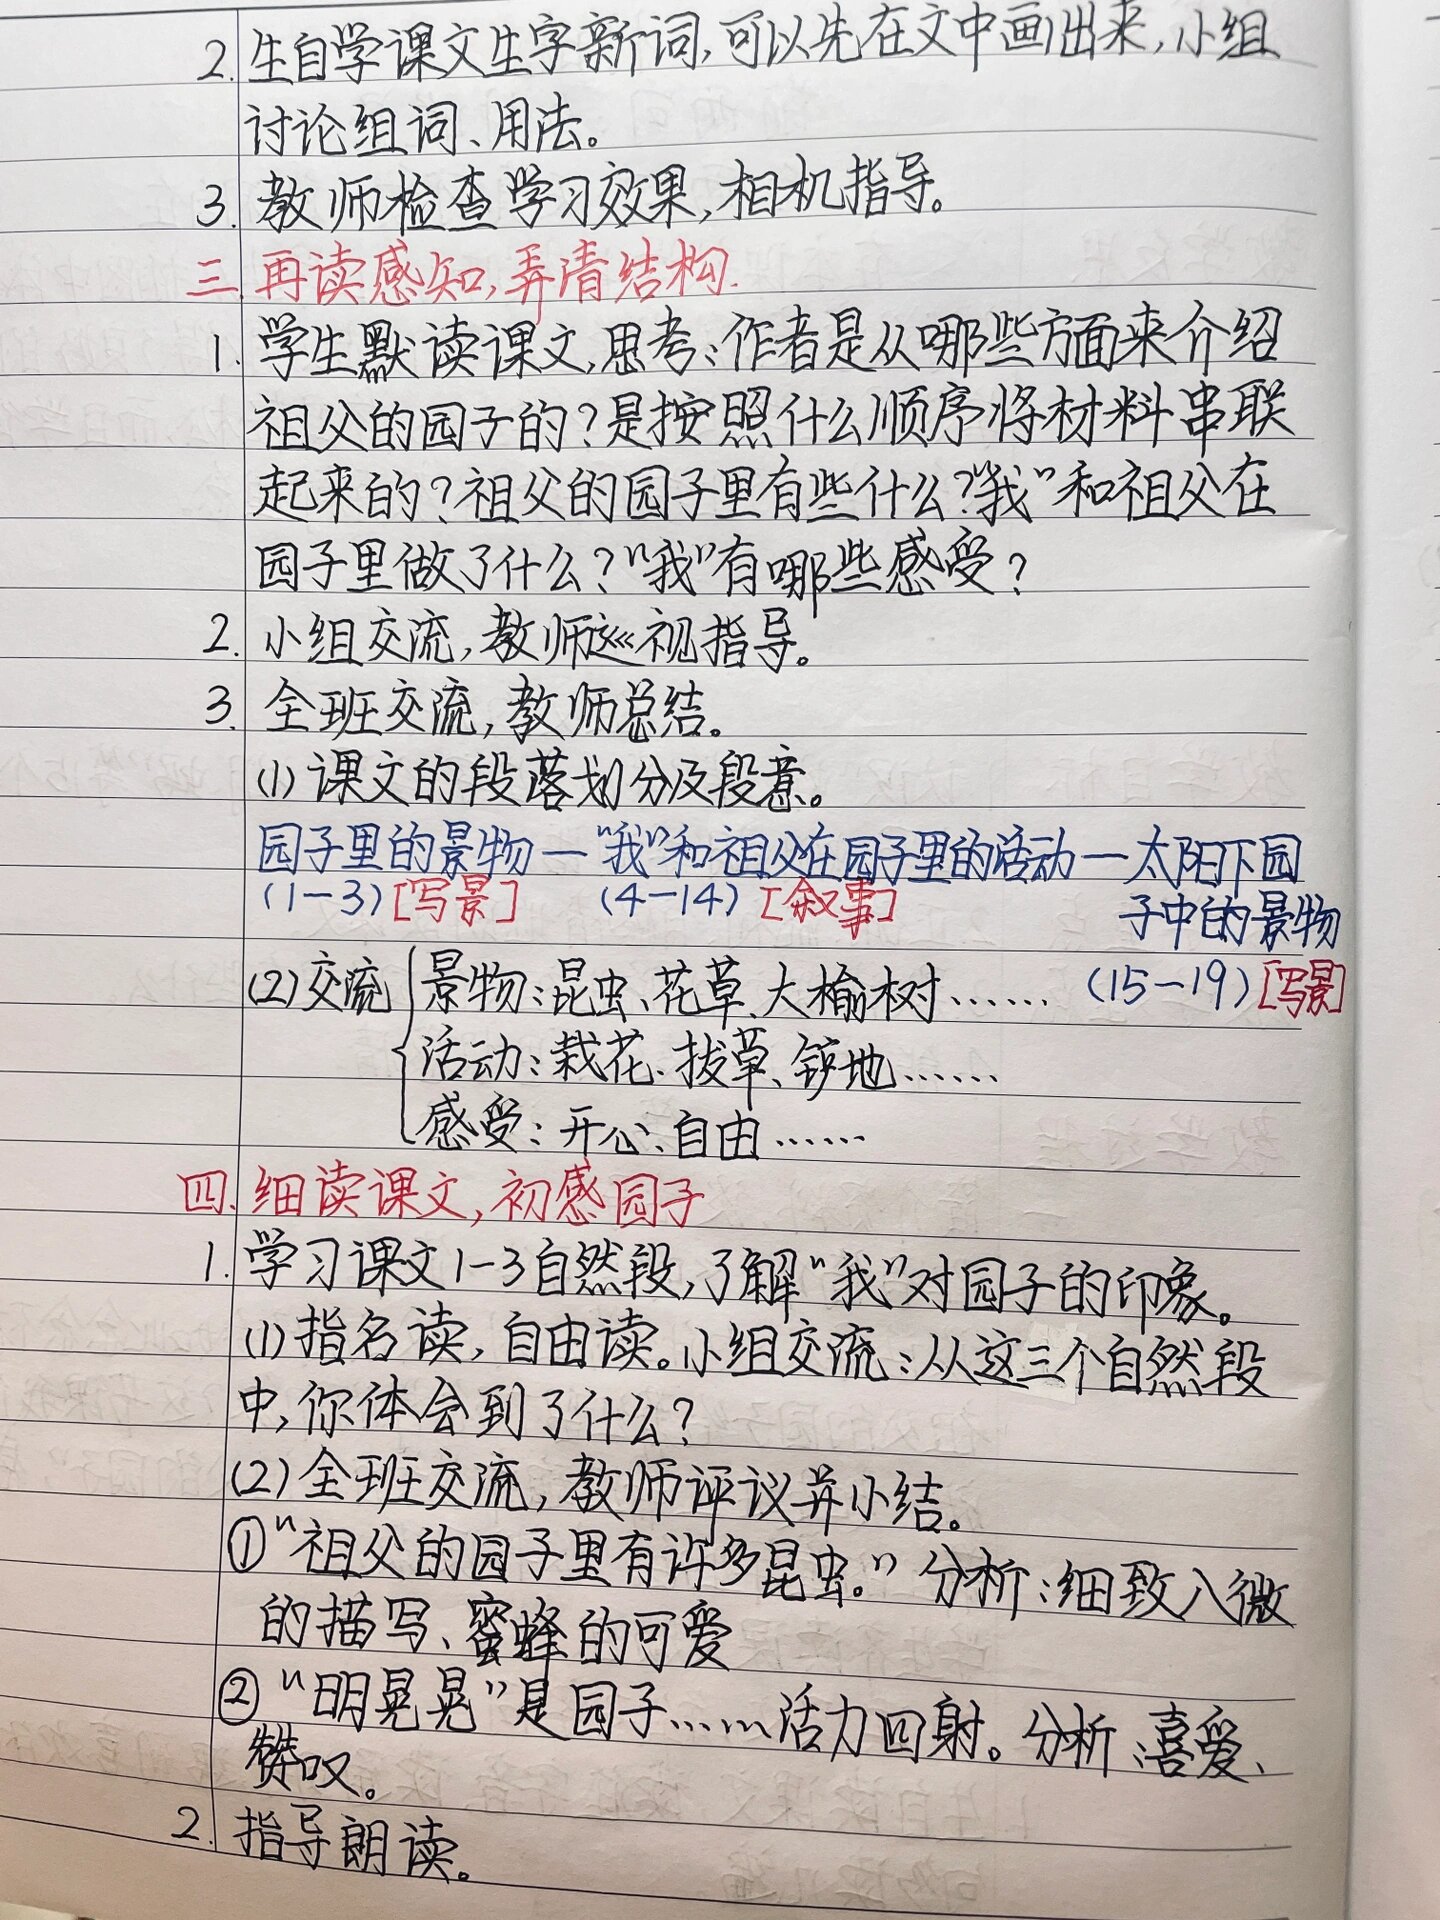 2. 生自学课文生字新词,可以先在文中画出来,小组
讨论组词、用法。
3. 教师检查学习效果,相机指导。
三. 再读感知,弄清结构.
1. 学生默读课文,思考:作者是从哪些方面来介绍
祖父的园子的?是按照什么顺序将材料串联
起来的?祖父的园子里有些什么?"我"和祖父在
园子里做了什么?"我"有哪些感受?
2. 小组交流,教师巡视指导。
3. 全班交流,教师总结。
(1) 课文的段落划分及段意。
园子里的景物—"我"和祖父在园子里的活动—太阳下园
(1-3)[写景] (4-14) [叙事] 子中的景物
(2)交流 景物:昆虫、花草、大榆树…… (15-19)[写景]
活动:栽花、拔草、铲地……
感受:开心、自由……
四. 细读课文,初感园子
1. 学习课文1-3自然段,了解"我"对园子的印象。
(1)指名读,自由读。小组交流:从这三个自然段
中,你体会到了什么?
(2)全班交流,教师评议并小结。
①"祖父的园子里有许多昆虫。"分析:细致入微
的描写、蜜蜂的可爱
②"明晃晃"是园子……活力回射。分析:喜爱、
赞叹。
2. 指导朗读。